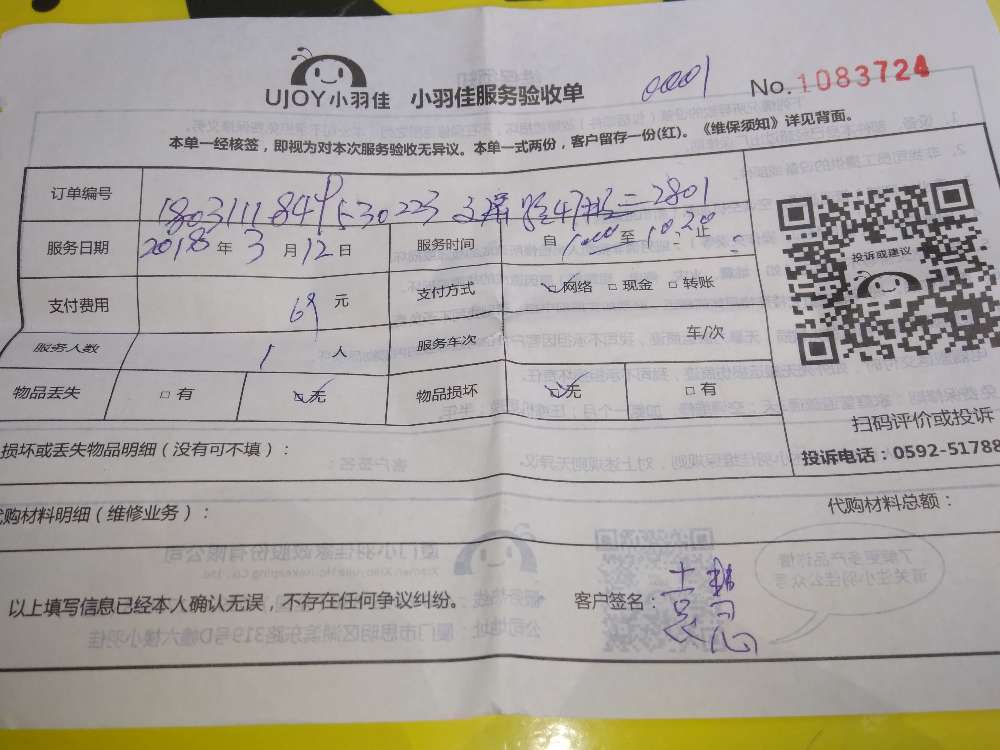 UJOY小羽佳 小羽佳服务验收单 0001 No.1083724
本单一经核签，即视为对本次服务验收无异议。本单一式两份，客户留存一份(红)。《维保须知》详见背面。
订单编号
服务日期 2018 年 3 月 12 日 服务时间 自 至 10:20 止
支付费用 69 元 支付方式 网络 □ 现金 □ 转账
服务人数 1 人 服务车次 车/次
物品丢失 □ 有 无 物品损坏 无 □ 有
投诉或建议
扫码评价或投诉
投诉电话：0592-51788
损坏或丢失物品明细（没有可不填）：
代购材料明细（维修业务）： 代购材料总额：
以上填写信息已经本人确认无误，不存在任何争议纠纷。 客户签名：